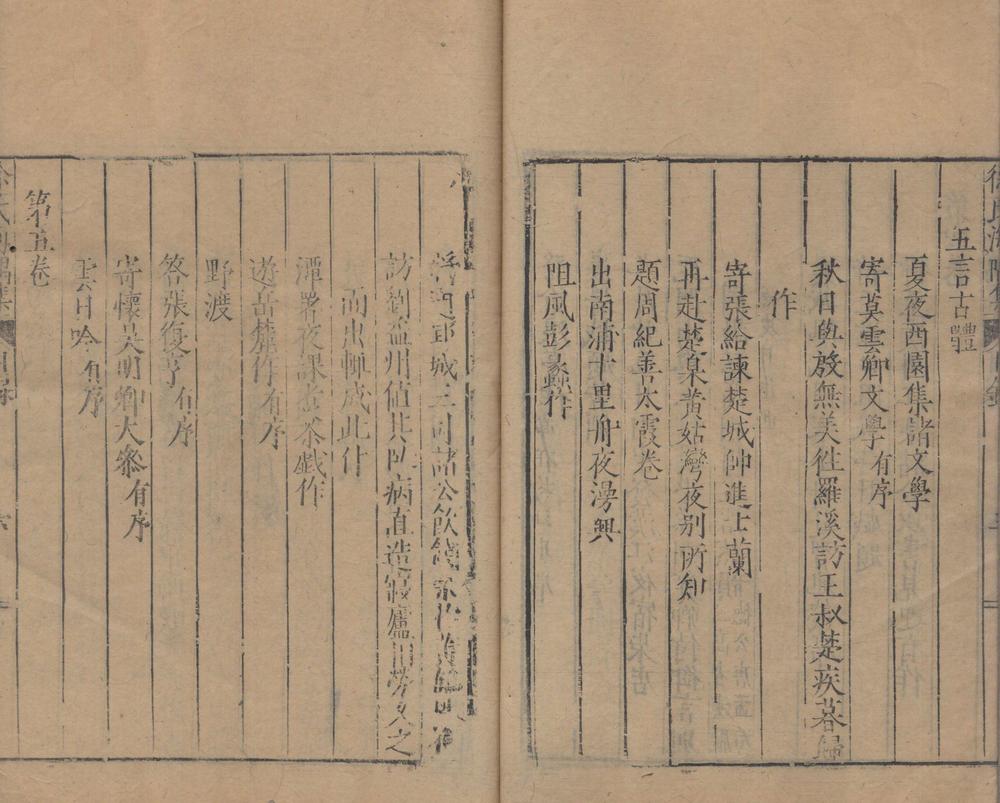 五言古體
夏夜西園集諸文學
寄莫雲卿文學有序
秋日與殷無美徃羅溪訪王叔楚疾暮歸
作
寄張給諫楚城帥進士蘭
再赴楚臬黃姑灣夜別所知
題周紀善太霞卷
出南浦十里舟夜漫興
阻風彭蠡作
城三司諸公飲餞
訪劉孟州值其臥病直造寢廬相勞久之
而出輙成此什
潭署夜課當茶戲作
遊岳麓作有序
野渡
答張復亨有序
寄懷吳明卿大參有序
雲日吟有序
第五卷